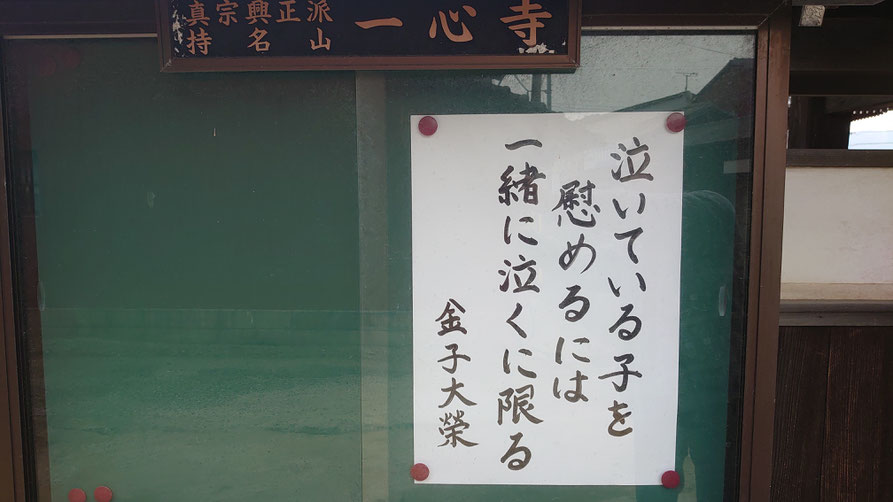 真宗興正派
持名山
一心寺
泣いている子を
慰めるには
一緒に泣くに限る
金子大榮